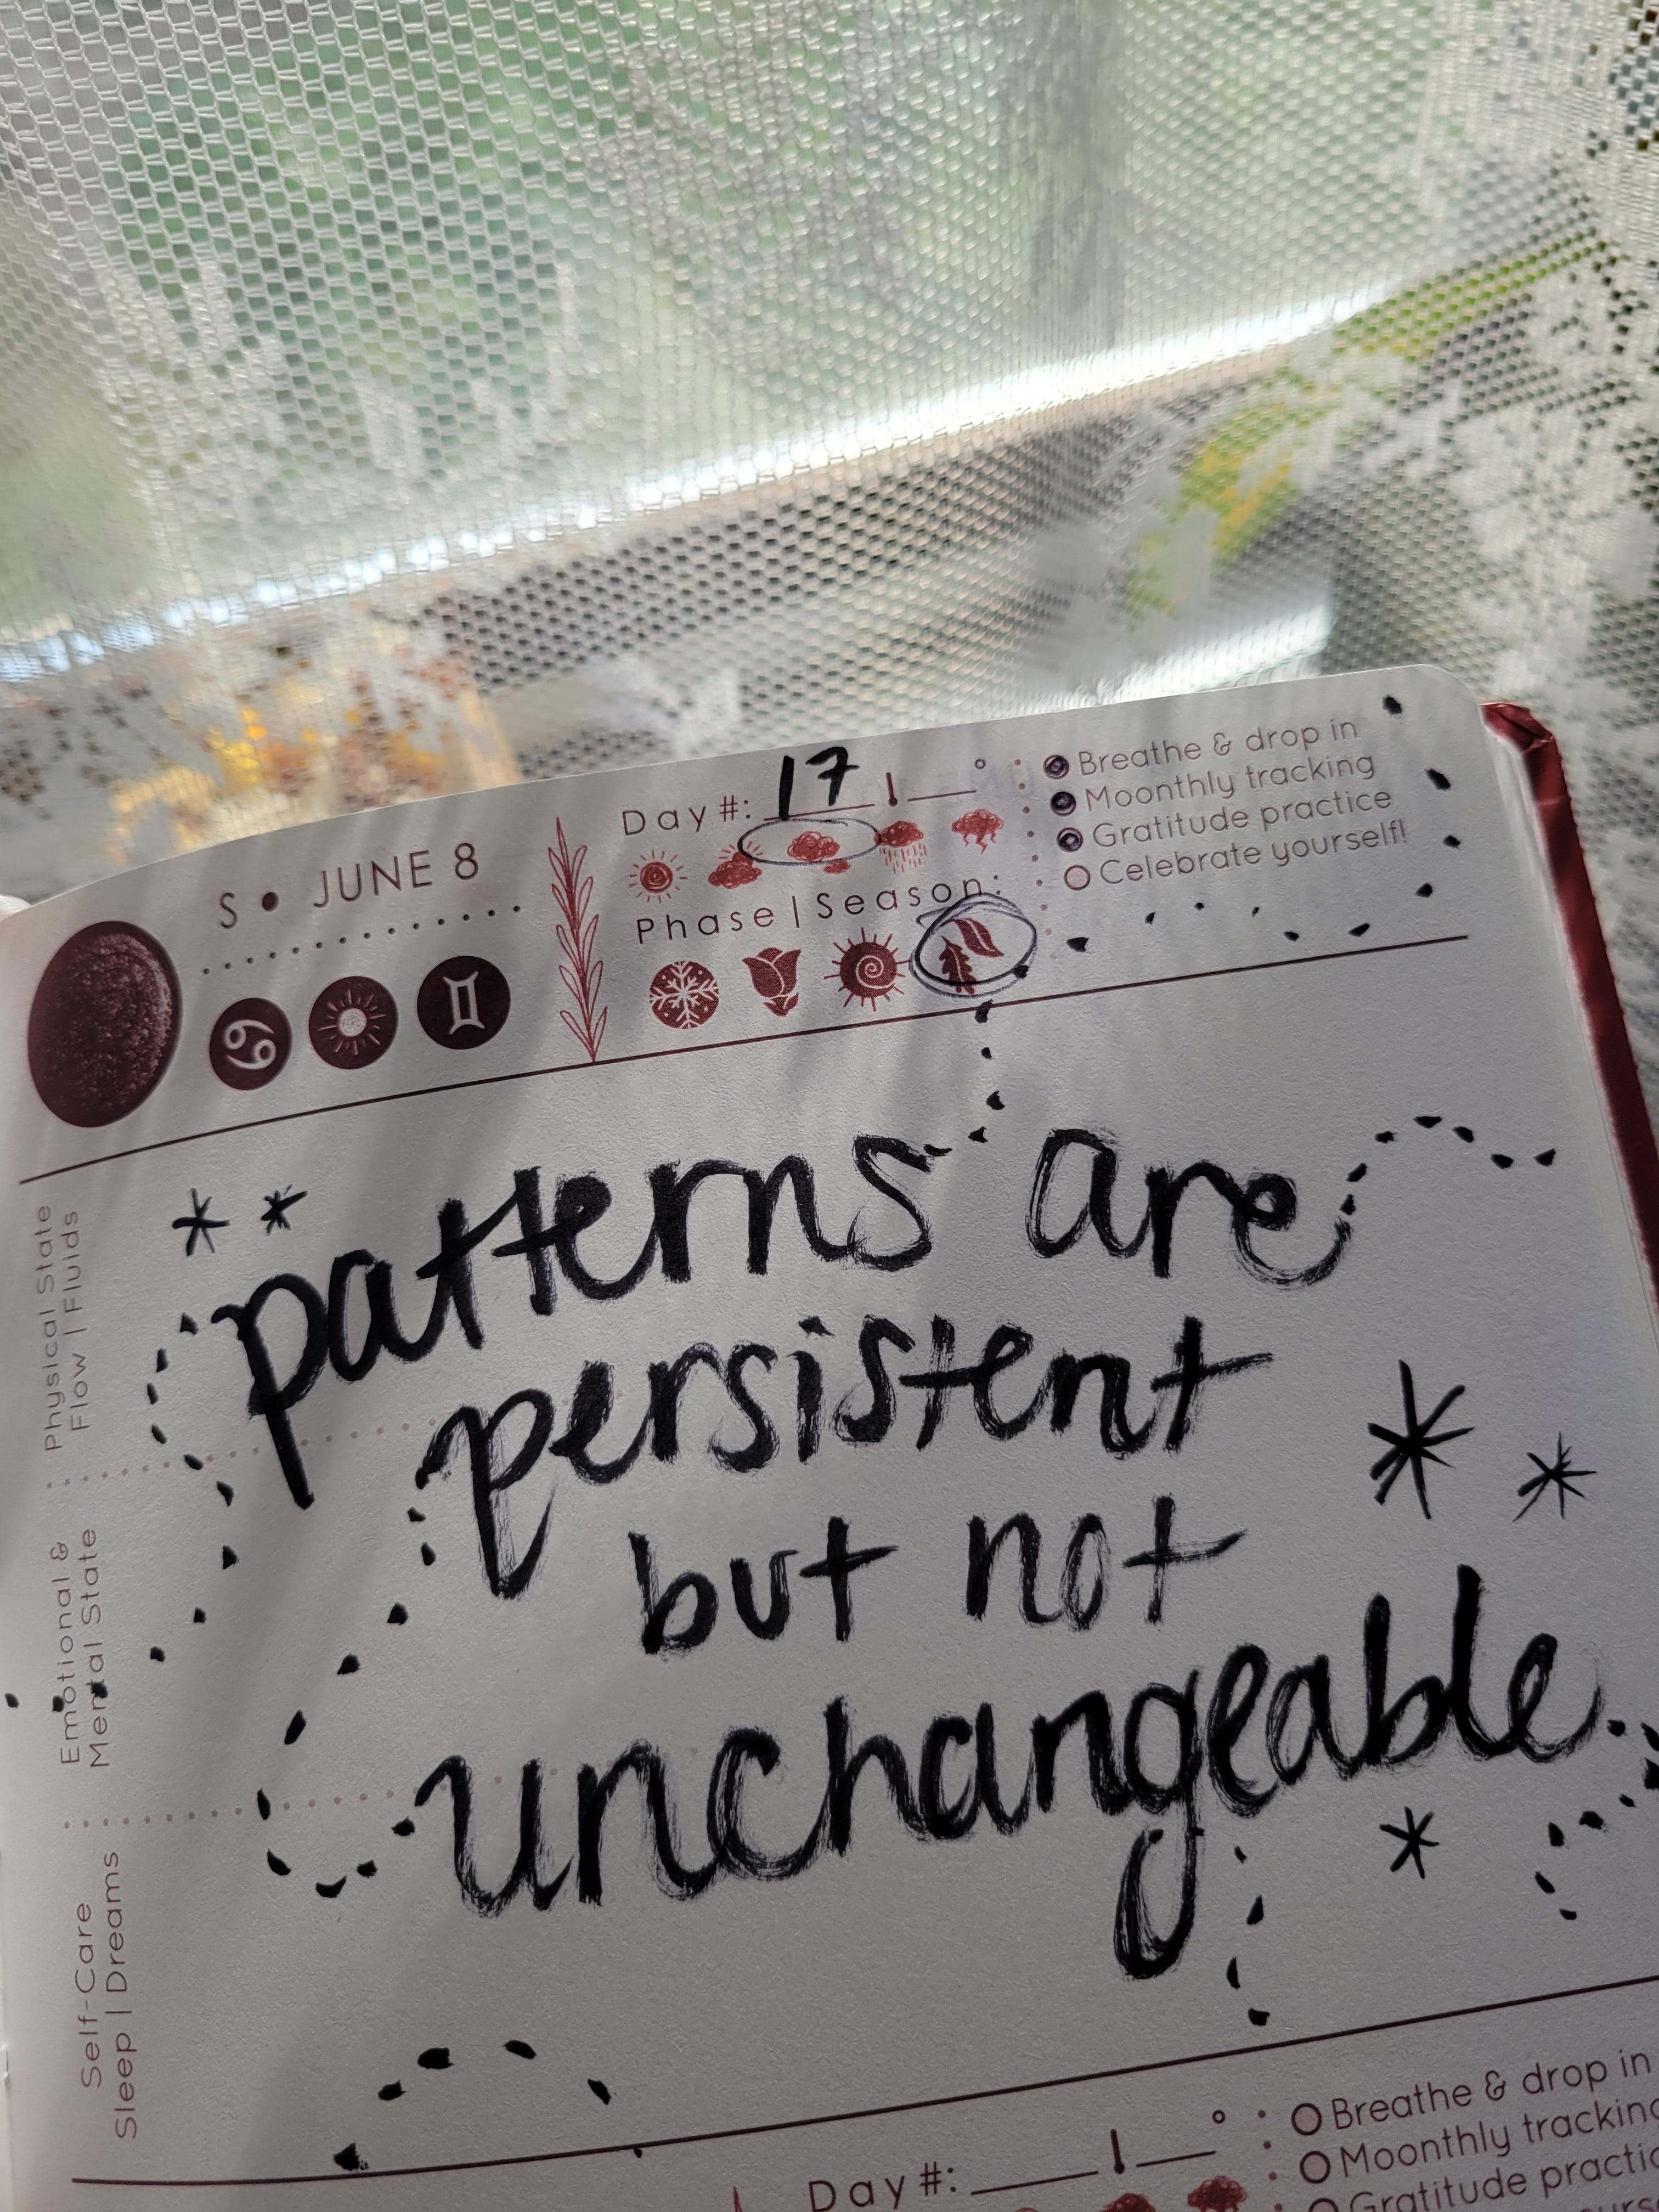 S • JUNE 8
Day #: 17
Phase | Season:
Breathe & drop in
Moonthly tracking
Gratitude practice
Celebrate yourself!
Physical State
Flow | Fluids
Emotional &
Mental State
Self-Care
Sleep | Dreams
patterns are
persistent
but not
unchangeable
Day #:
Breathe & drop in
Moonthly tracking
Gratitude